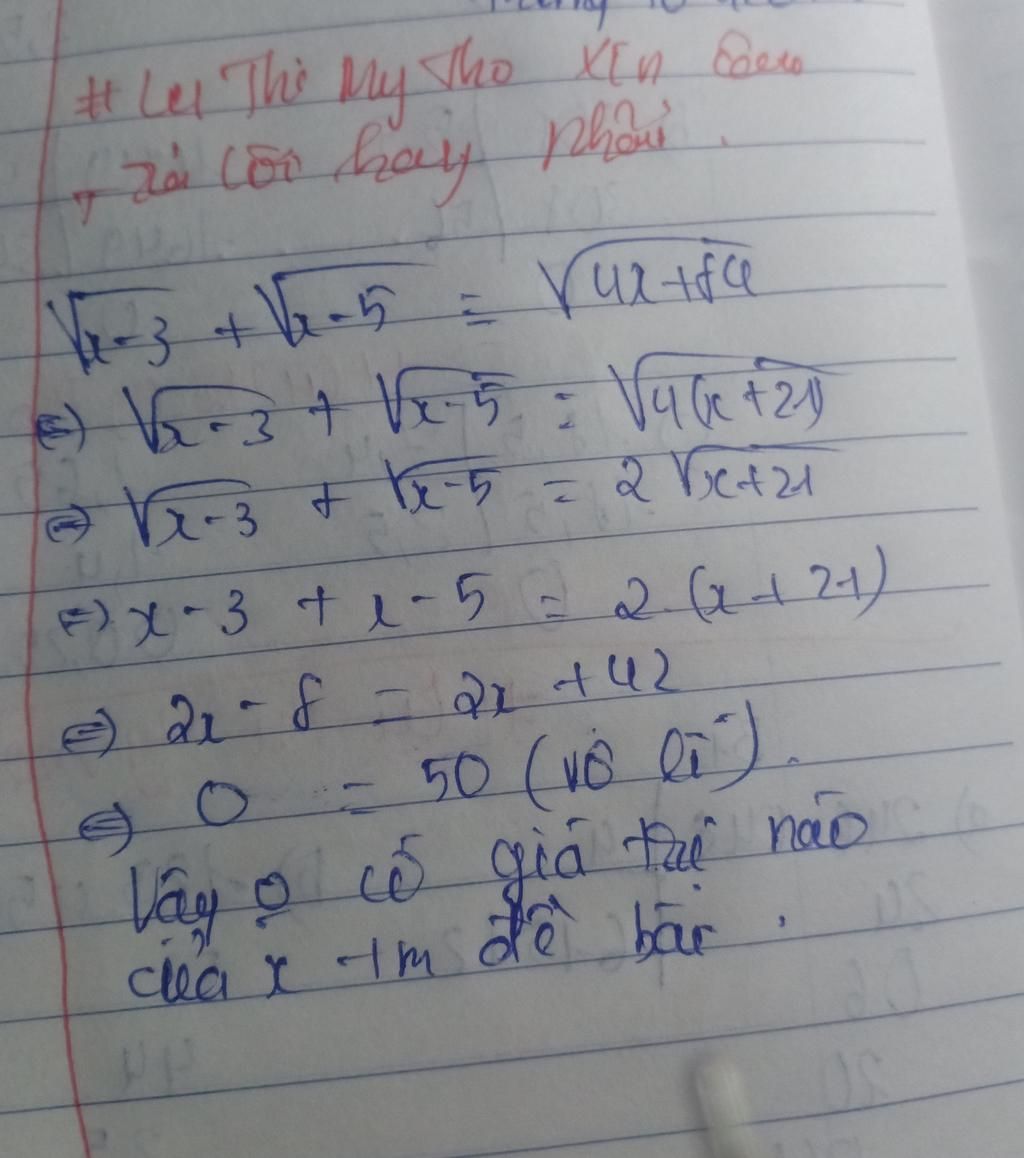 # Lu Thi My Tho xin
hay phải.
√x-3 + √x-5 = √4x+84
⇔) √x-3 + √x-5 = √4(x+21)
⇔) √x-3 + √x-5 = 2 √x+21
⇔) x-3 + x-5 = 2.(x+21)
⇔) 2x-8 = 2x+42
⇔) 0 = 50 (vô lí).
Vậy o có giá trị nào
của x tm đề bài.